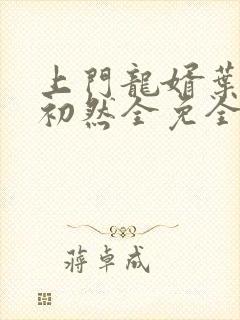 上門龍婿葉
初然全免全
蔣卓成